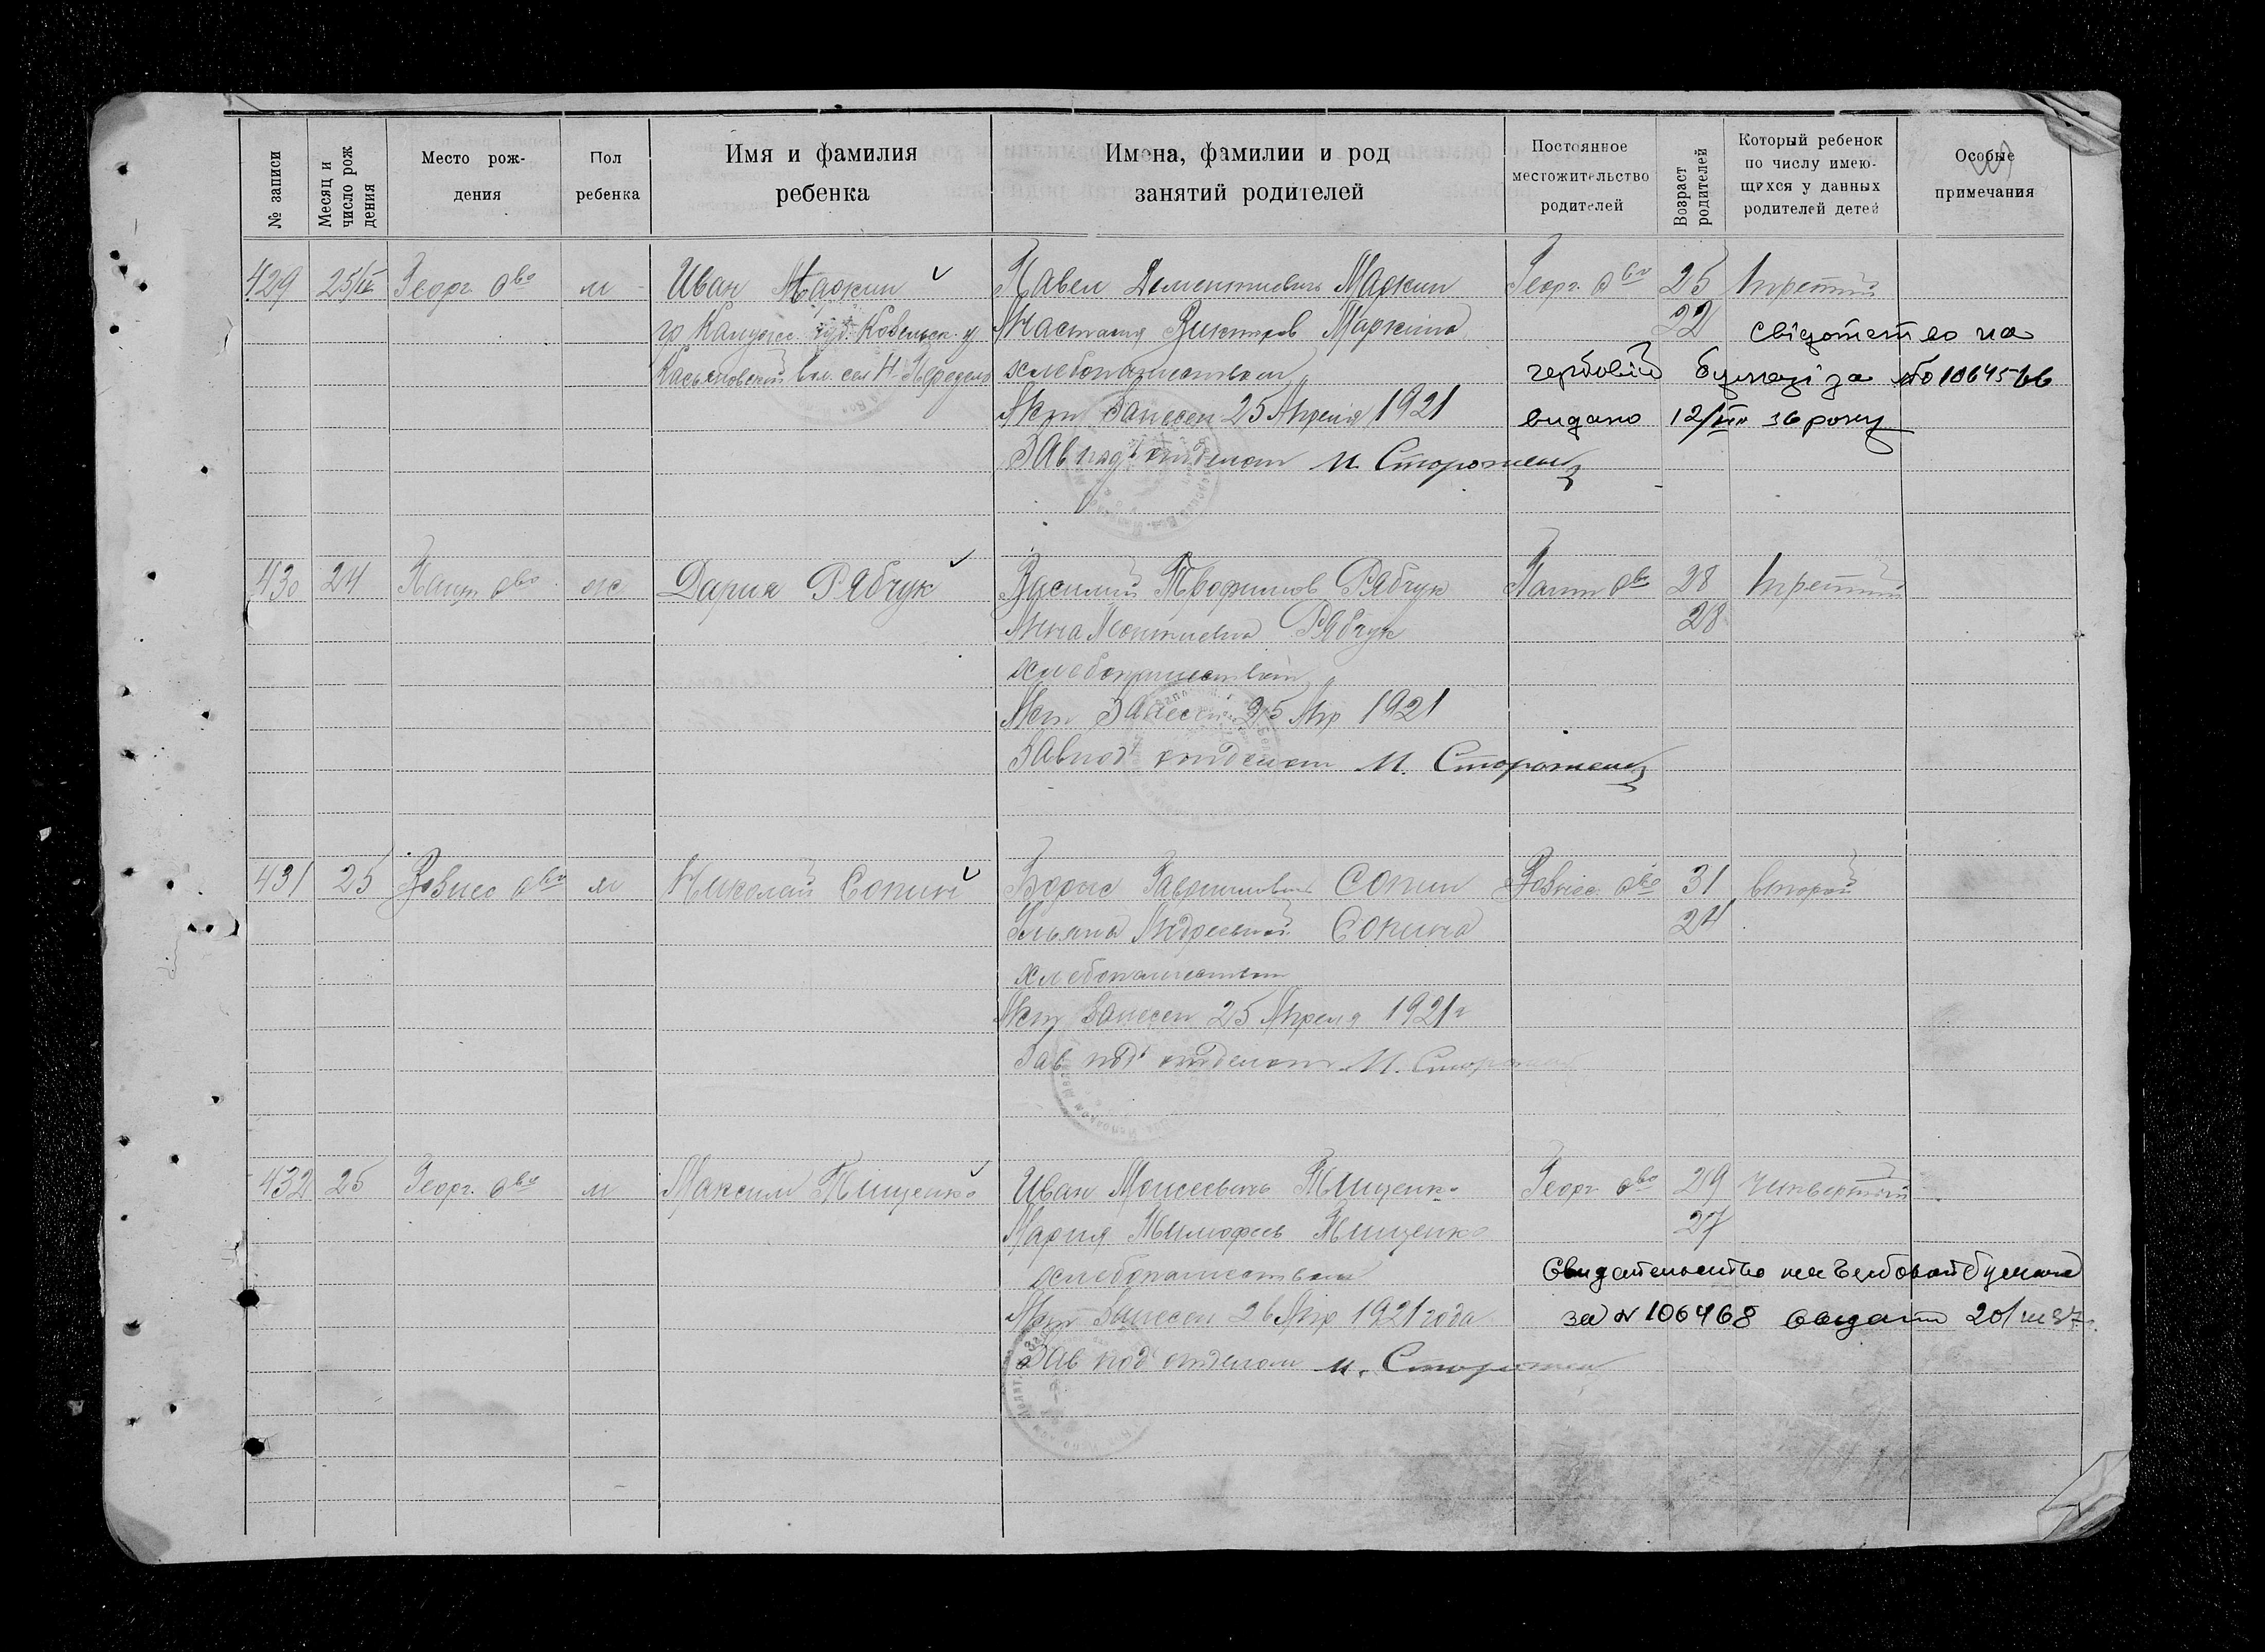 № записи
Месяц и число рождения
Место рождения
Пол ребенка
Имя и фамилия ребенка
Имена, фамилии и род занятий родителей
Постоянное местожительство родителей
Возраст родителей
Который ребенок по числу имеющихся у данных родителей детей
Особые примечания
429 25/IV Георг. о-во м Иван Маркин Павел Дементиевич Маркин Георг. о-во 25 третий
Анастасия Маркина 22 Свідотетво на
хлебопашеством гербовій бумазі за №
Акт Занесен 25 Апреля 1921 видано 12/III 36 року
Зав под отделом И. Стороженко
430 24 о-во ж Дария Рябчук Василий Трофимов Рябчук о-во 28 третий
Анна Рябчук 28
хлебопашеством
Акт Занесен 25 Апр 1921
Зав под отделом И. Стороженко
431 25 Вознес о-во м Николай Сопин Борис Гаврилович Сопин Вознес. о-во 31 второй
Ульяна Андреевна Сопина 24
хлебопашеством
Акт Занесен 25 Апреля 1921 г
Зав под отделом И. Стороженко
432 25 Георг. о-во м Максим Тищенко Иван Моисеевич Тищенко Георг о-во 29 четвертый
Мария Тимофеев Тищенко 27
хлебопашеством Свидетельство на гербовой бумаге
Акт Занесен 26 Апр 1921 года за № 106468 выдано 20/III
Зав под отделом И. Стороженко